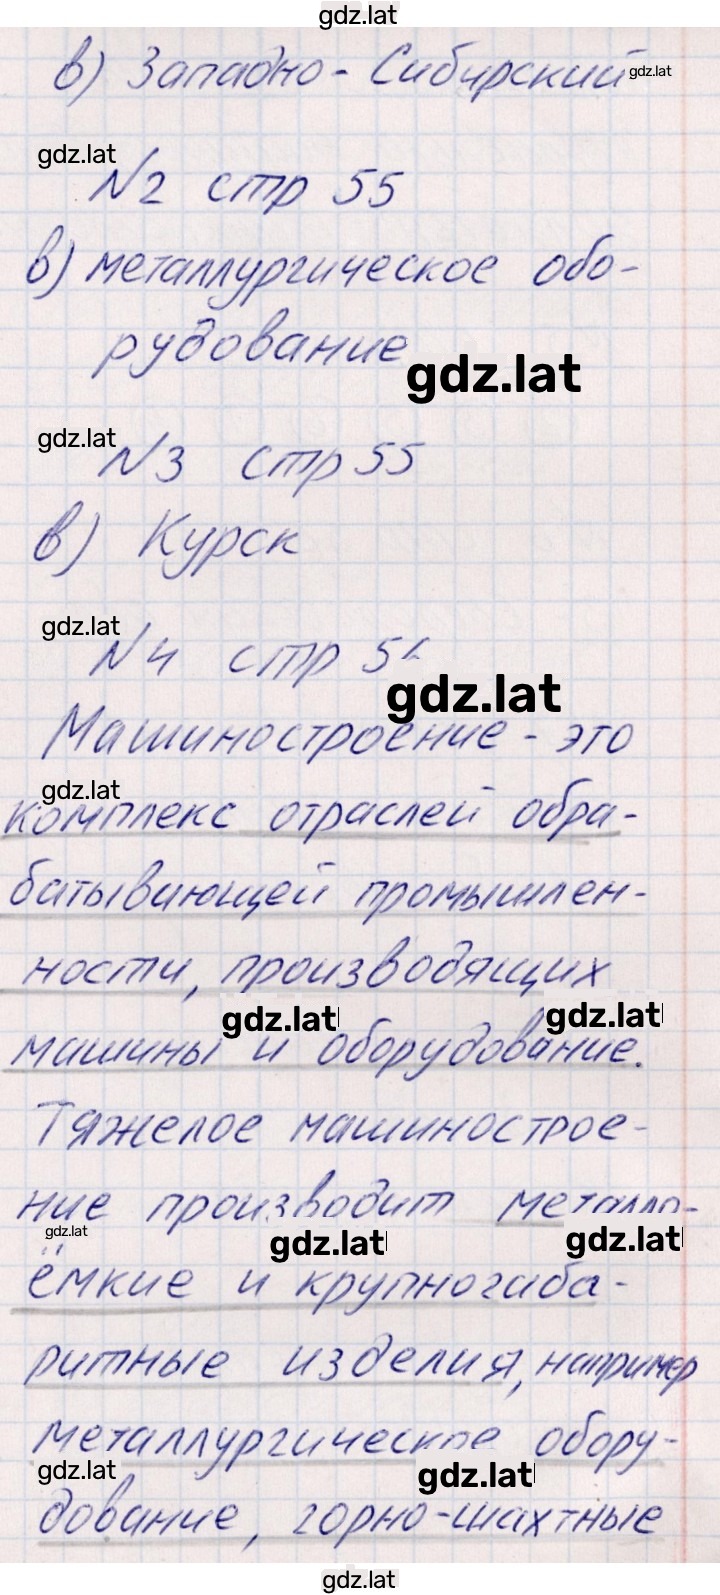 gdz.lat
в) Западно-Сибирский
gdz.lat
gdz.lat
N2 стр 55
в) металлургическое обо-
рудование
gdz.lat
gdz.lat
N3 стр 55
в) Курск
gdz.lat
N4 стр
gdz.lat
Машиностроение - это
gdz.lat
комплекс отраслей обра-
батывающей промышлен-
ности, производящих
gdz.lat gdz.lat
машины и оборудование.
Тяжелое машинострое-
ние производит металло-
gdz.lat gdz.lat gdz.lat
ёмкие и крупногаба-
ритные изделия, например
металлургическое обору-
gdz.lat gdz.lat
дование, горно-шахтные
gdz.lat